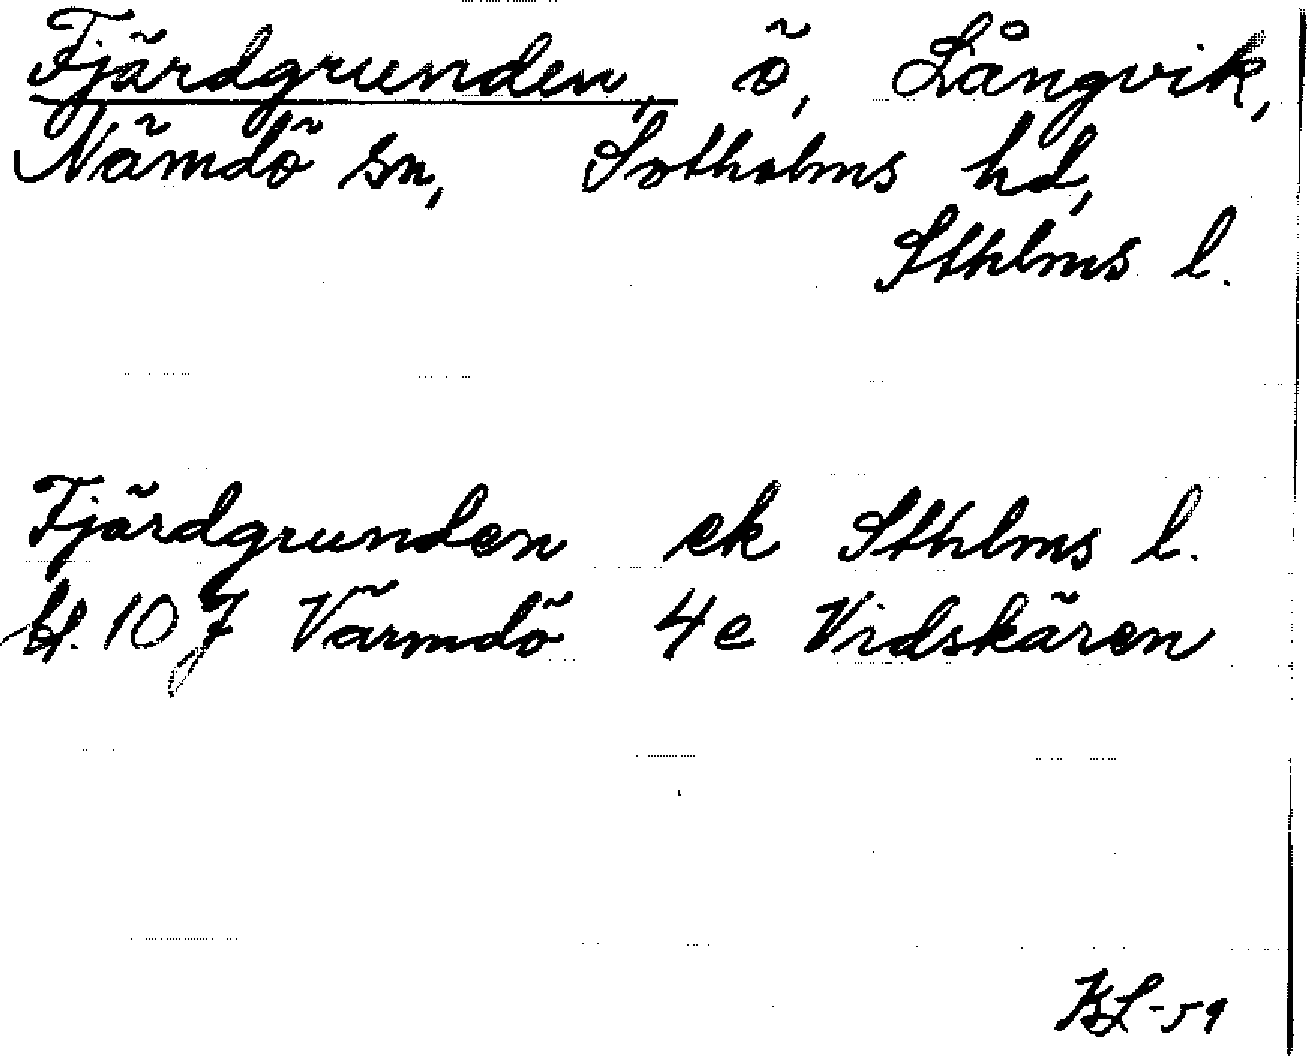 Fjärdgrunden, ö, Långvik,
Nämdö sn, Sotholms hd,
Sthlms l.
Fjärdgrunden ek Sthlms l.
bl. 107 Värmdö 4e Vidskären
KL-59